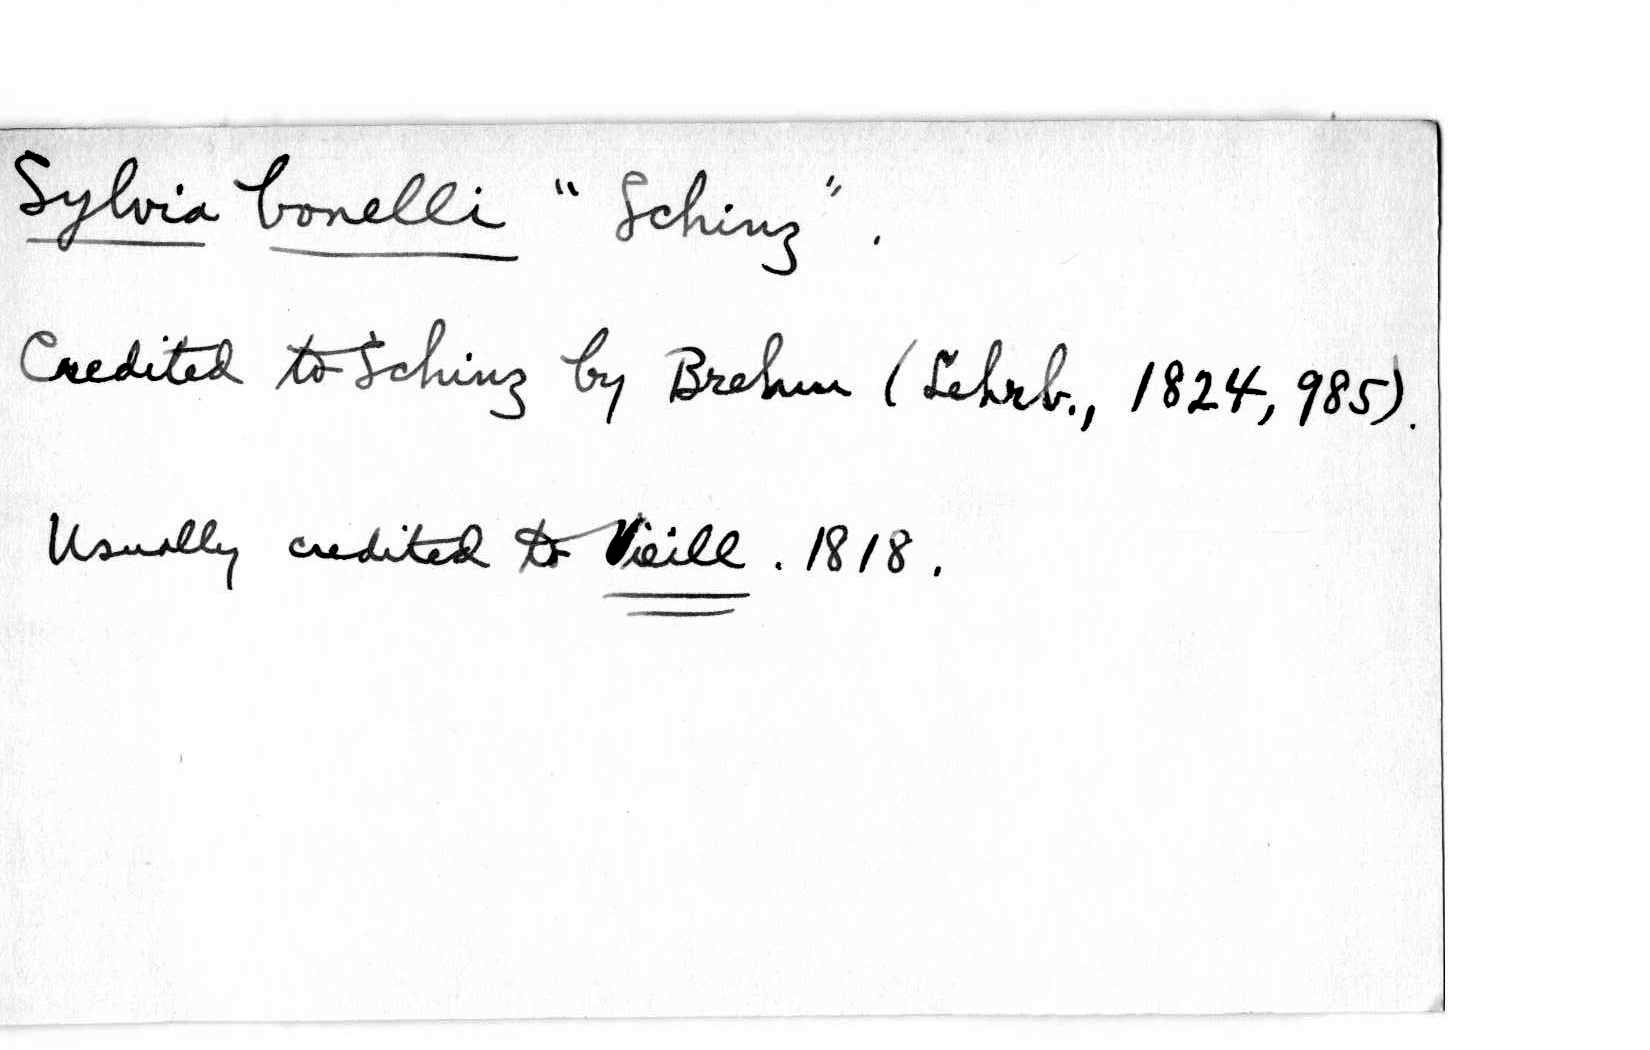 Sylvia bonelli "Schinz".
Credited to Schinz by Brehm (Lehrb., 1824, 985).
Usually credited to Vieill. 1818.